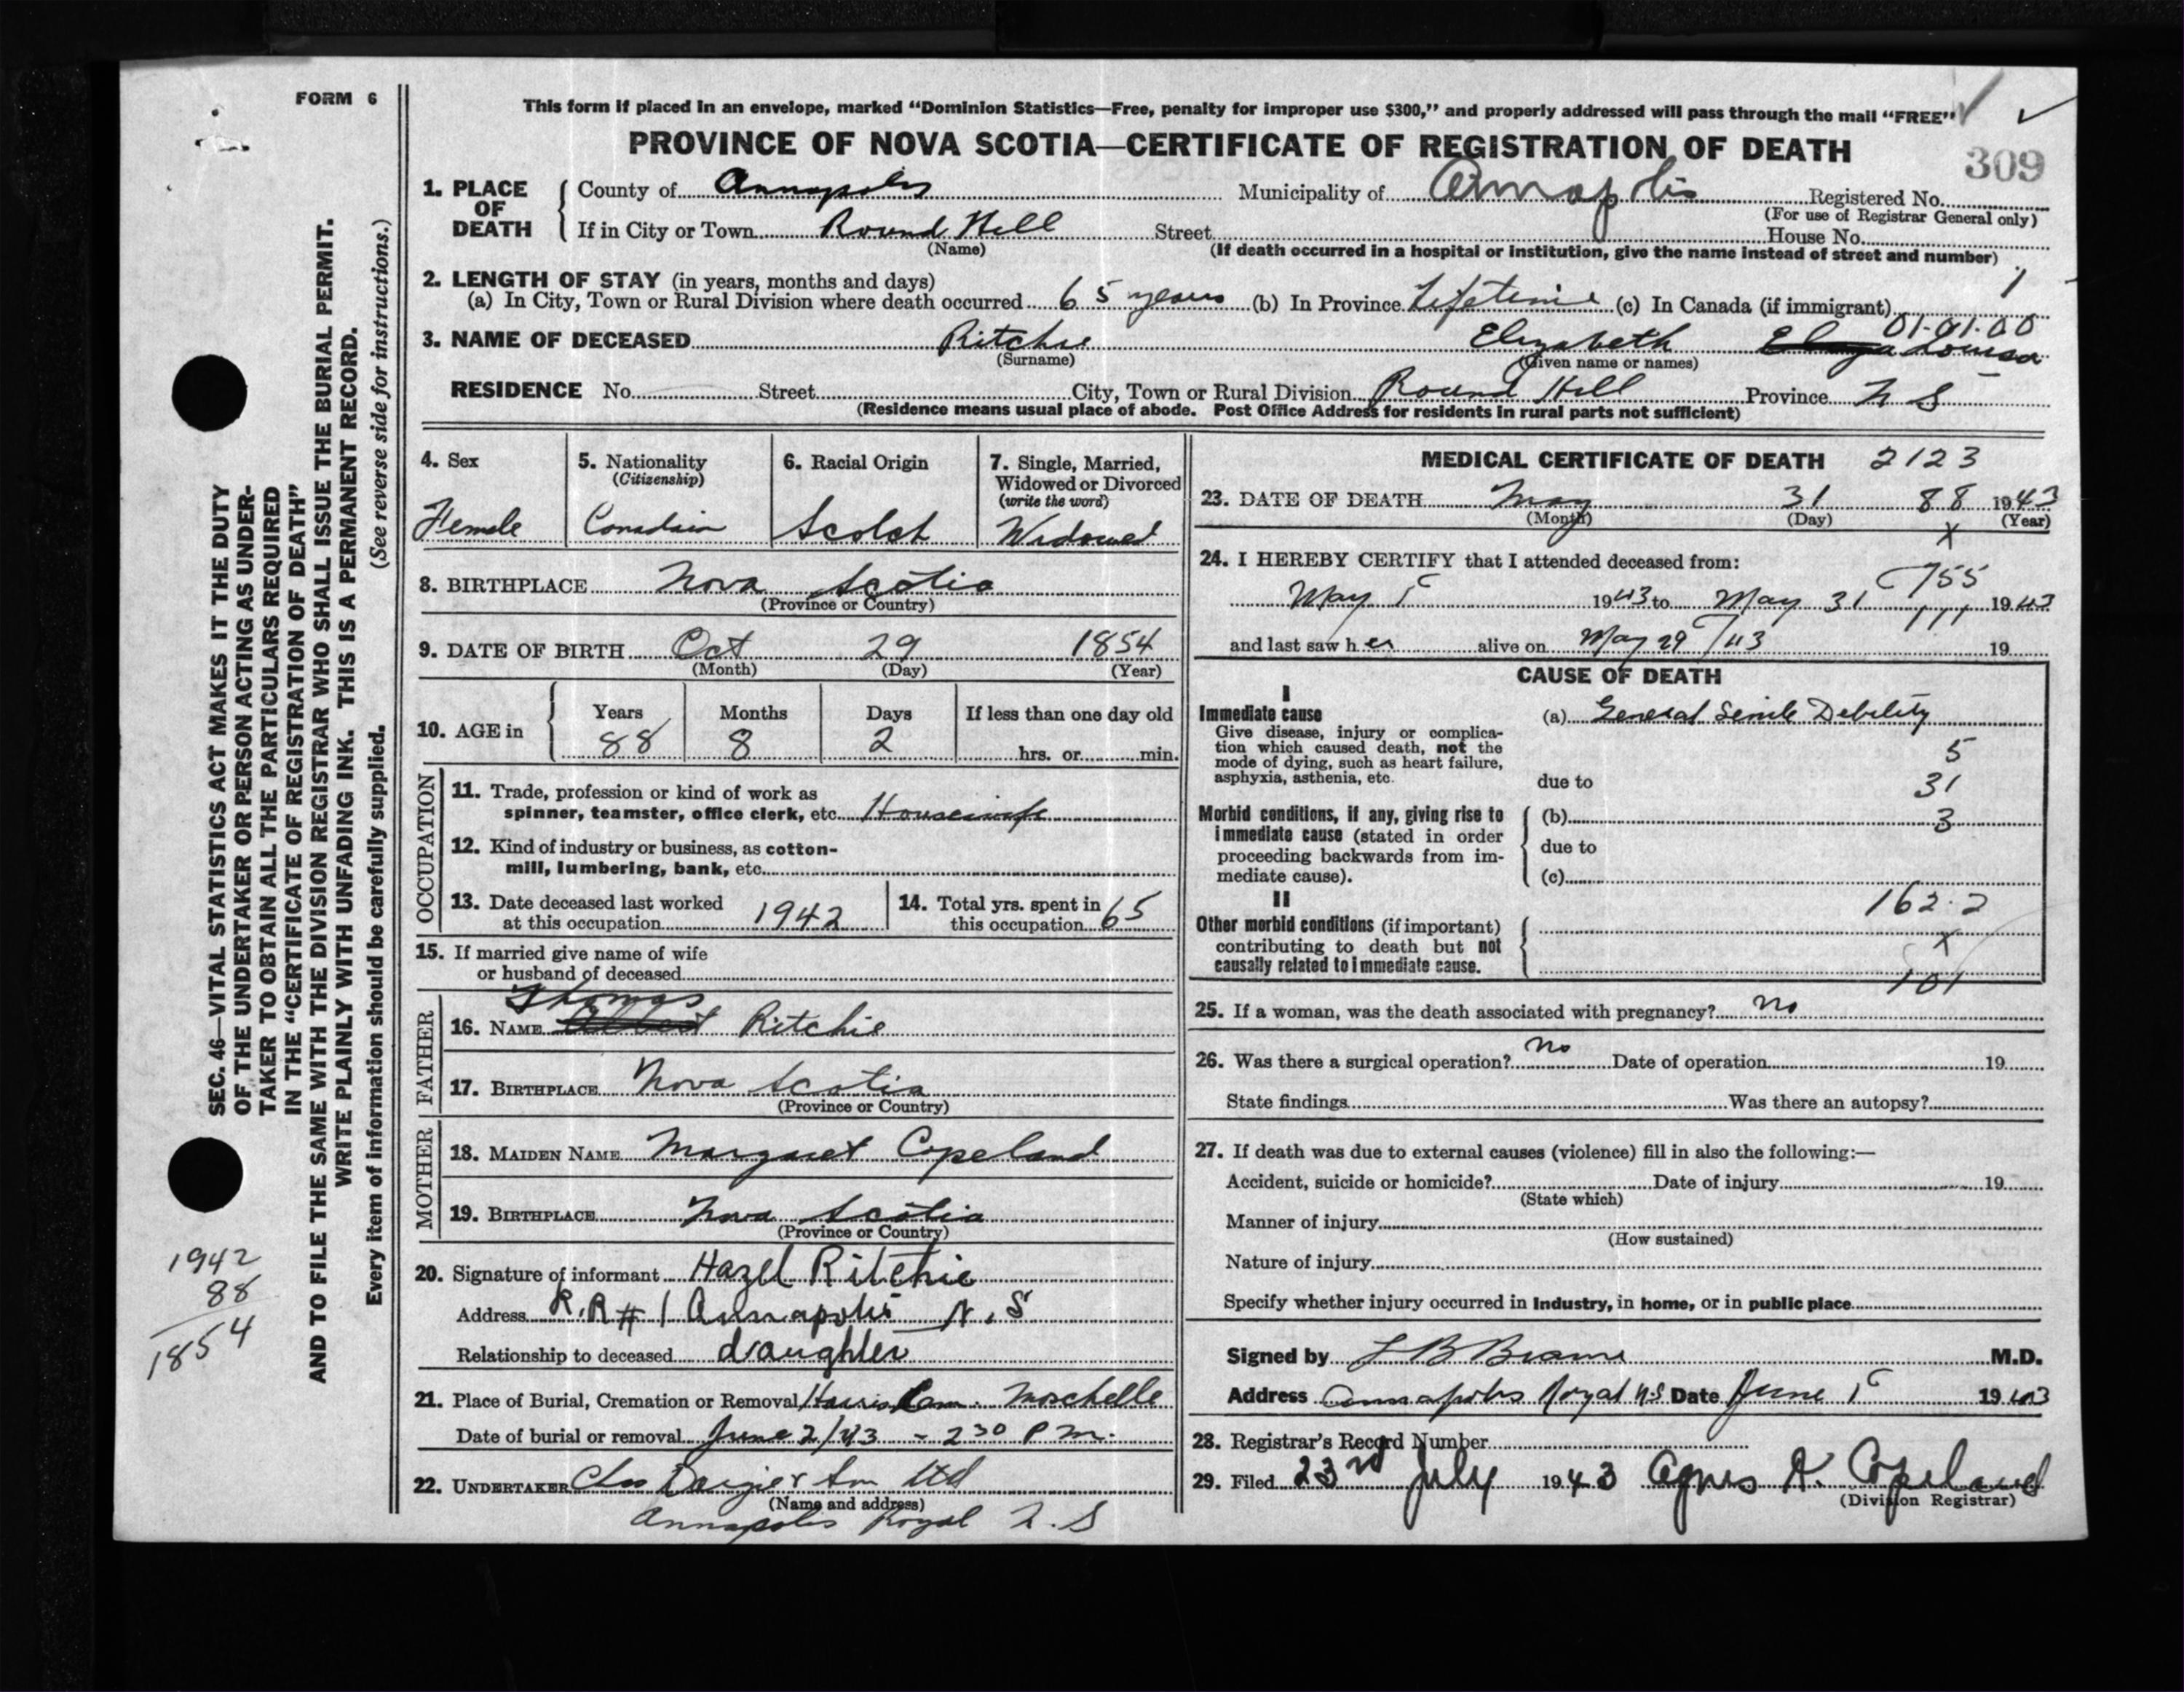 FORM 6
This form if placed in an envelope, marked “Dominion Statistics—Free, penalty for improper use $300,” and properly addressed will pass through the mail “FREE”
PROVINCE OF NOVA SCOTIA—CERTIFICATE OF REGISTRATION OF DEATH
309
1. PLACE OF DEATH
County of Annapolis Municipality of Annapolis Registered No.
(For use of Registrar General only)
If in City or Town Round Hill Street House No.
(Name) (If death occurred in a hospital or institution, give the name instead of street and number)
2. LENGTH OF STAY (in years, months and days) 1
(a) In City, Town or Rural Division where death occurred 65 years (b) In Province Lifetime (c) In Canada (if immigrant)
01.01.00
3. NAME OF DECEASED Ritchie Elizabeth Louisa
(Surname) (Given name or names)
RESIDENCE No. Street City, Town or Rural Division Round Hill Province N S
(Residence means usual place of abode. Post Office Address for residents in rural parts not sufficient)
4. Sex
Female
5. Nationality
(Citizenship)
Canadain
6. Racial Origin
Scotch
7. Single, Married,
Widowed or Divorced
(write the word)
Widowed
8. BIRTHPLACE Nova Scotia
(Province or Country)
9. DATE OF BIRTH Oct 29 1854
(Month) (Day) (Year)
10. AGE in
Years Months Days If less than one day old
88 8 2 hrs. or min.
OCCUPATION
11. Trade, profession or kind of work as
spinner, teamster, office clerk, etc. Housewife
12. Kind of industry or business, as cotton-
mill, lumbering, bank, etc.
13. Date deceased last worked
at this occupation 1942
14. Total yrs. spent in
this occupation 65
15. If married give name of wife
or husband of deceased
FATHER
Thomas
16. NAME Ritchie
17. BIRTHPLACE Nova Scotia
(Province or Country)
MOTHER
18. MAIDEN NAME Margaret Copeland
19. BIRTHPLACE Nova Scotia
(Province or Country)
20. Signature of informant Hazel Ritchie
Address R.R # 1 Annapolis N.S
Relationship to deceased daughter
21. Place of Burial, Cremation or Removal Harris Cem. Moschelle
Date of burial or removal June 2/43 - 2 30 P m.
22. UNDERTAKER Ltd
(Name and address)
Annapolis Royal N.S
MEDICAL CERTIFICATE OF DEATH 2123
23. DATE OF DEATH May 31 88 1943
(Month) (Day) (Year)
x
24. I HEREBY CERTIFY that I attended deceased from:
755
May 1 1943 to May 31 1943
111
and last saw her alive on May 29/43 19
CAUSE OF DEATH
I
Immediate cause
Give disease, injury or complica-
tion which caused death, not the
mode of dying, such as heart failure,
asphyxia, asthenia, etc.
(a) General Senile Debility
5
due to
31
Morbid conditions, if any, giving rise to
immediate cause (stated in order
proceeding backwards from im-
mediate cause).
(b) 3
due to
(c)
II
162.2
Other morbid conditions (if important)
contributing to death but not
causally related to immediate cause.
x
101
25. If a woman, was the death associated with pregnancy? no
26. Was there a surgical operation? no Date of operation 19
State findings Was there an autopsy?
27. If death was due to external causes (violence) fill in also the following:—
Accident, suicide or homicide? Date of injury 19
(State which)
Manner of injury
(How sustained)
Nature of injury
Specify whether injury occurred in Industry, in home, or in public place
Signed by M.D.
Address Annapolis Royal N.S Date June 1 1943
28. Registrar's Record Number
29. Filed 23rd July 1943 Agnes A. Copeland
(Division Registrar)
SEC. 46—VITAL STATISTICS ACT MAKES IT THE DUTY
OF THE UNDERTAKER OR PERSON ACTING AS UNDER-
TAKER TO OBTAIN ALL THE PARTICULARS REQUIRED
IN THE “CERTIFICATE OF REGISTRATION OF DEATH”
AND TO FILE THE SAME WITH THE DIVISION REGISTRAR WHO SHALL ISSUE THE BURIAL PERMIT.
WRITE PLAINLY WITH UNFADING INK. THIS IS A PERMANENT RECORD.
Every item of information should be carefully supplied. (See reverse side for instructions.)
1942
88
1854